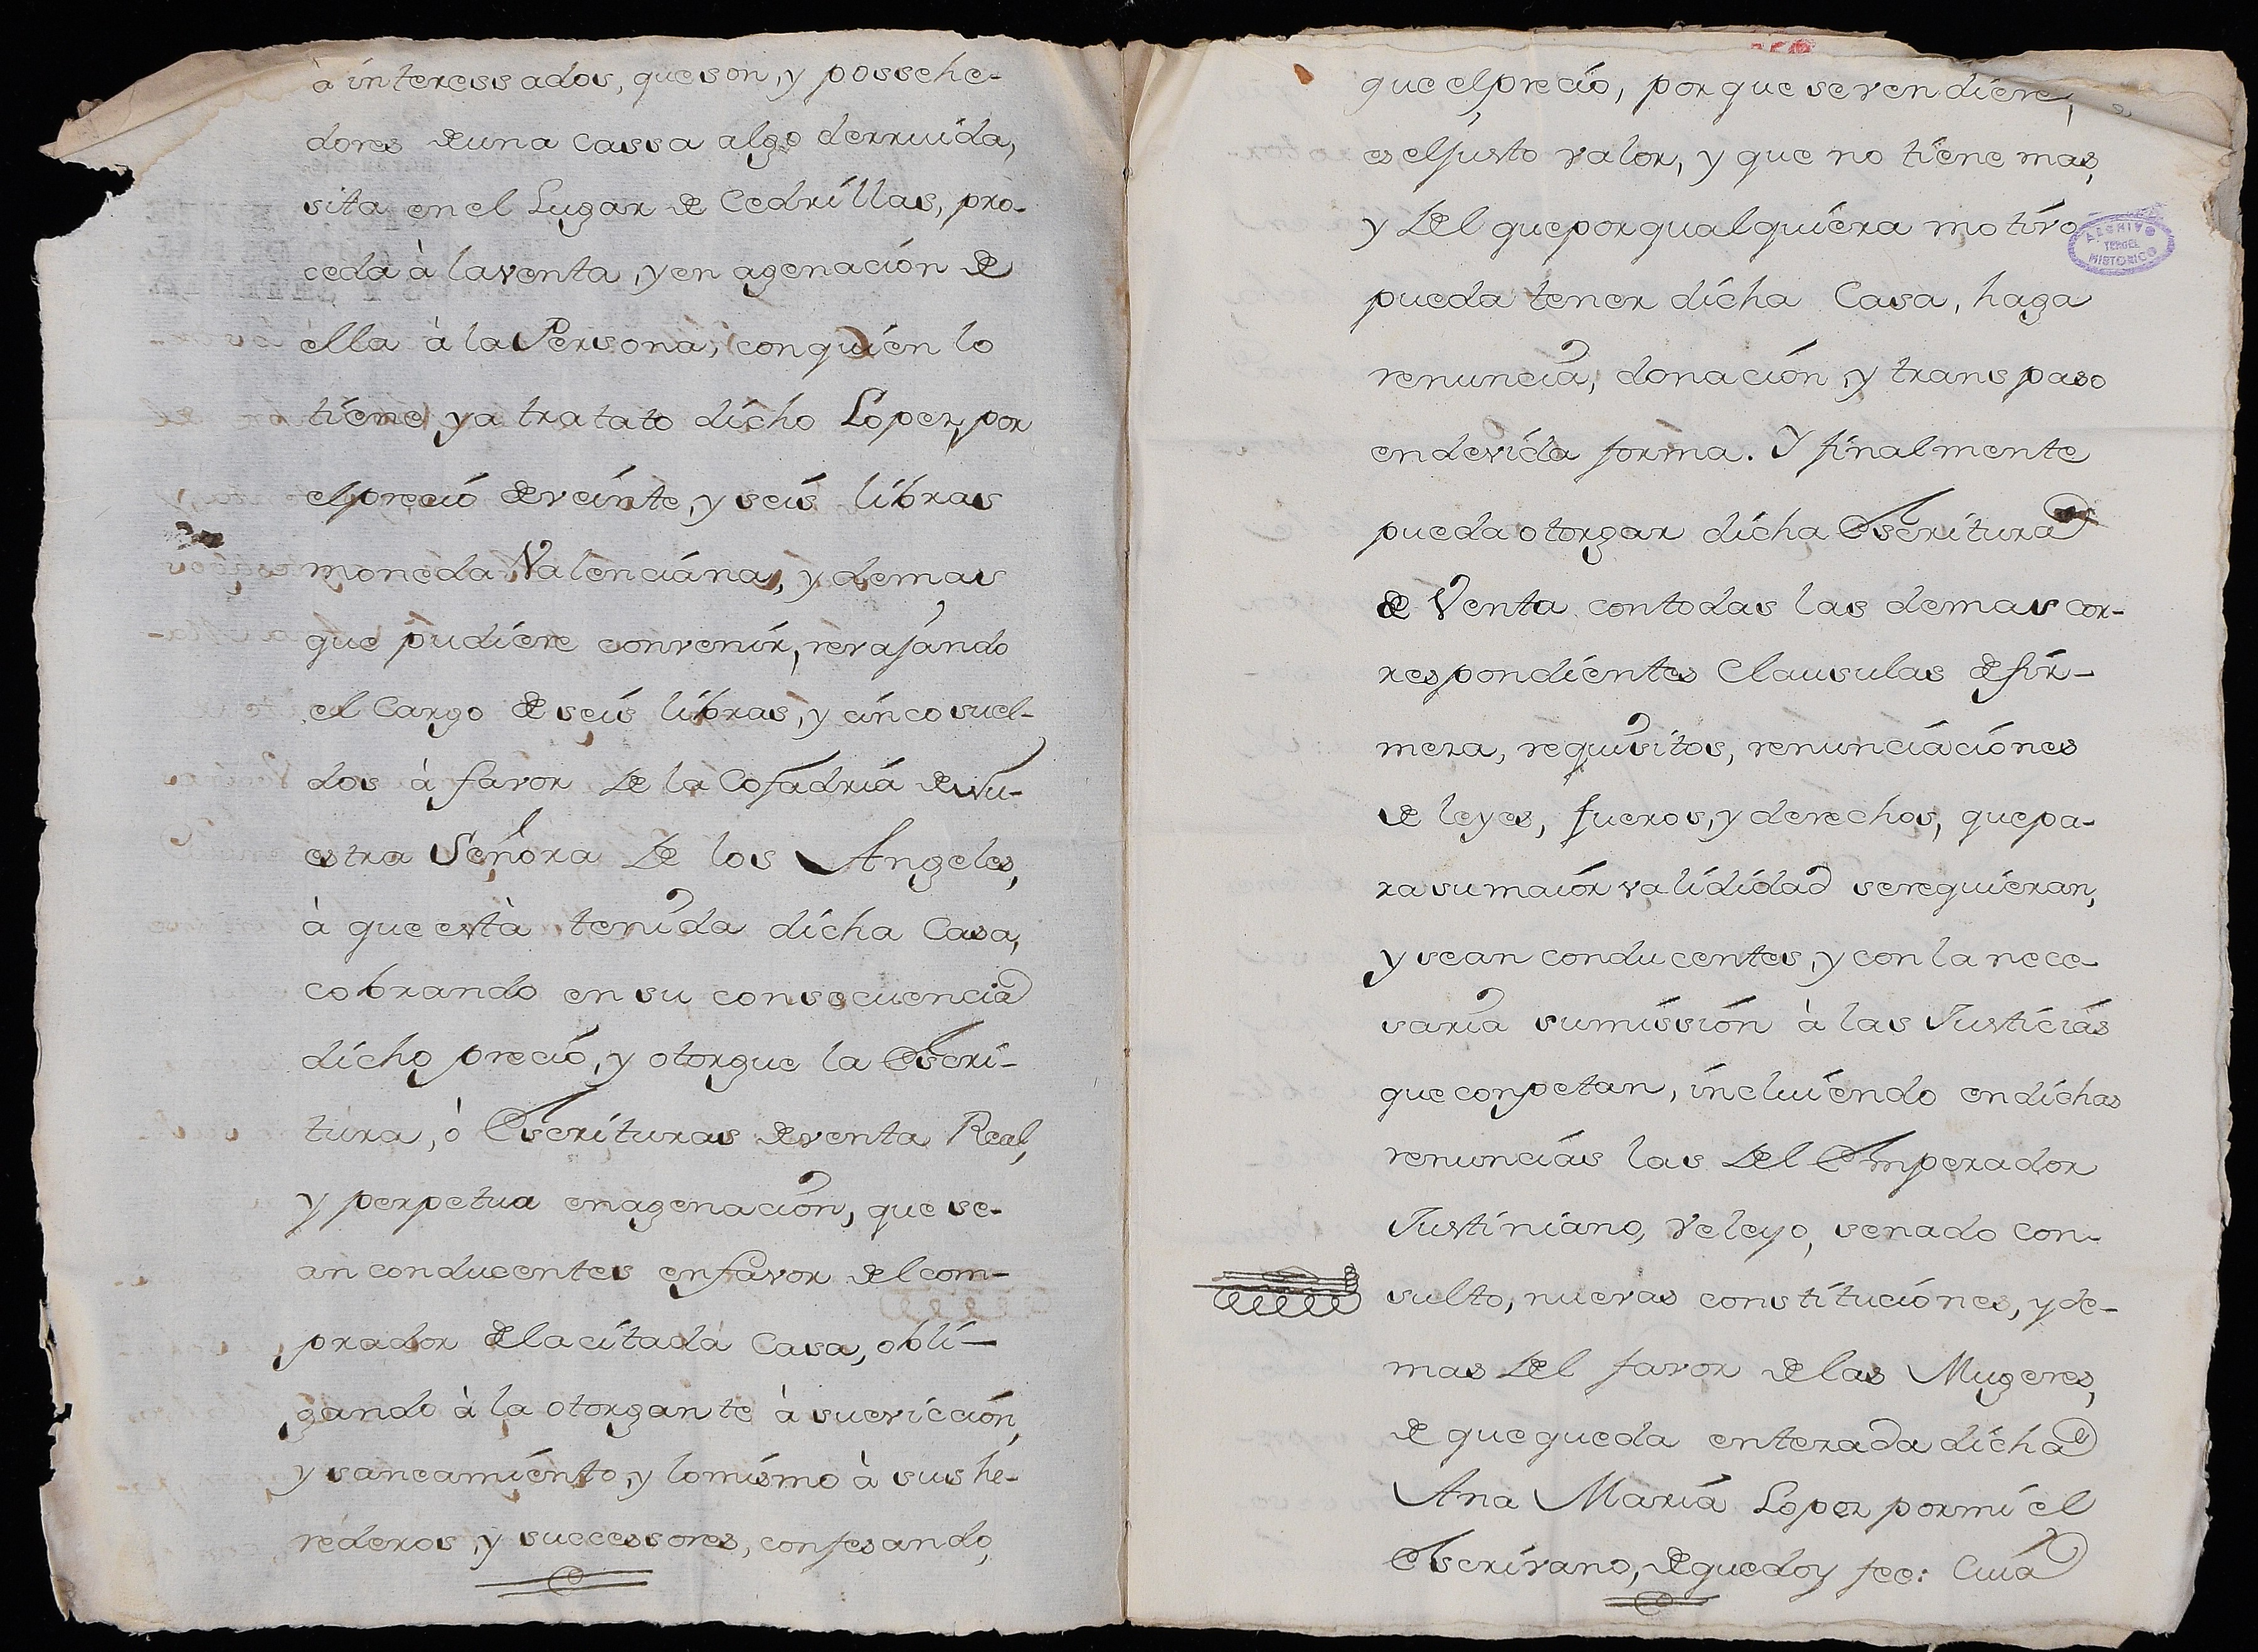 à interessados, que son, y possehe-
dores de una Cassa algo derruida,
sita en el Lugar de Cedrillas, pro-
ceda à la venta, y en agenación de
ella à la Persona, con quien lo
tiene ya tratato dicho Lopez, por
el precio de veinte, y seis libras
moneda Valenciana, y demas
que pudiere convenir, revajando
el Cargo de seis libras, y cinco suel-
dos à favor de la Cofadria de Nu-
estra Señora de los Angeles,
à que està tenida dicha Casa,
cobrando en su consecuencia
dicho precio, y otorgue la Escri-
tura, ò Escrituras de venta Real,
y perpetua enagenación, que se-
an conducentes en favor del com-
prador de la citada Casa, obli-
gando à la otorgante à su evicción,
y saneamiento, y lo mismo à sus he-
rederos, y successores, confesando,
que el precio, por que se vendiere,
es el justo valor, y que no tiene mas,
y del que por qualquiera motivo
pueda tener dicha Casa, haga
renuncia, donación, y transpaso
en devida forma. Y finalmente
pueda otorgar dicha Escritura
de Venta con todas las demas cor-
respondientes Clausulas de fir-
meza, requisitos, renunciaciones
de leyes, fueros, y derechos, que pa-
ra su maior valididad se requieran,
y sean conducentes, y con la nece-
saria sumissión à las Justicias
que conpetan, incluiendo en dichas
renuncias las del Emperador
Justiniano, Veleyo, senado con-
sulto, nuevas constituciones, y de-
mas del favor de las Mugeres,
de que queda enterada dicha
Ana Maria Lopez por mi el
Escrivano, de que doy fee: Cuia
ARCHIVO
TERUEL
HISTORICO